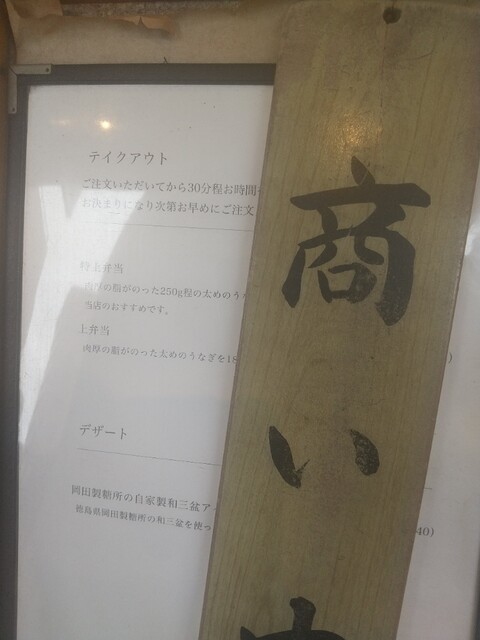 テイクアウト
ご注文いただいてから30分程お時間
お決まりになり次第お早めにご注文
特上弁当
肉厚の脂がのった250g程の太めのうな
当店のおすすめです。
上弁当
肉厚の脂がのった太めのうなぎを18
デザート
岡田製糖所の自家製和三盆ア
徳島県岡田製糖所の和三盆を使っ
)
40)
商い